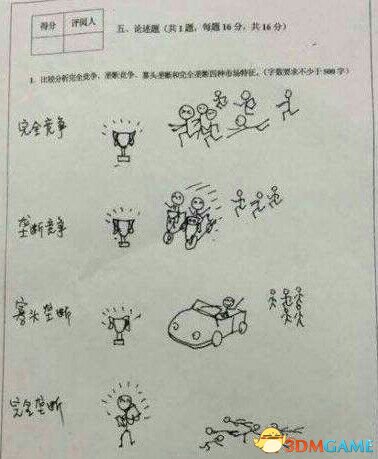 得分 评阅人
五、论述题（共1题，每题16分，共16分）
1. 比较分析完全竞争、垄断竞争、寡头垄断和完全垄断四种市场特征。（字数要求不少于500字）
完全竞争
垄断竞争
寡头垄断
完全垄断
3DMGAME